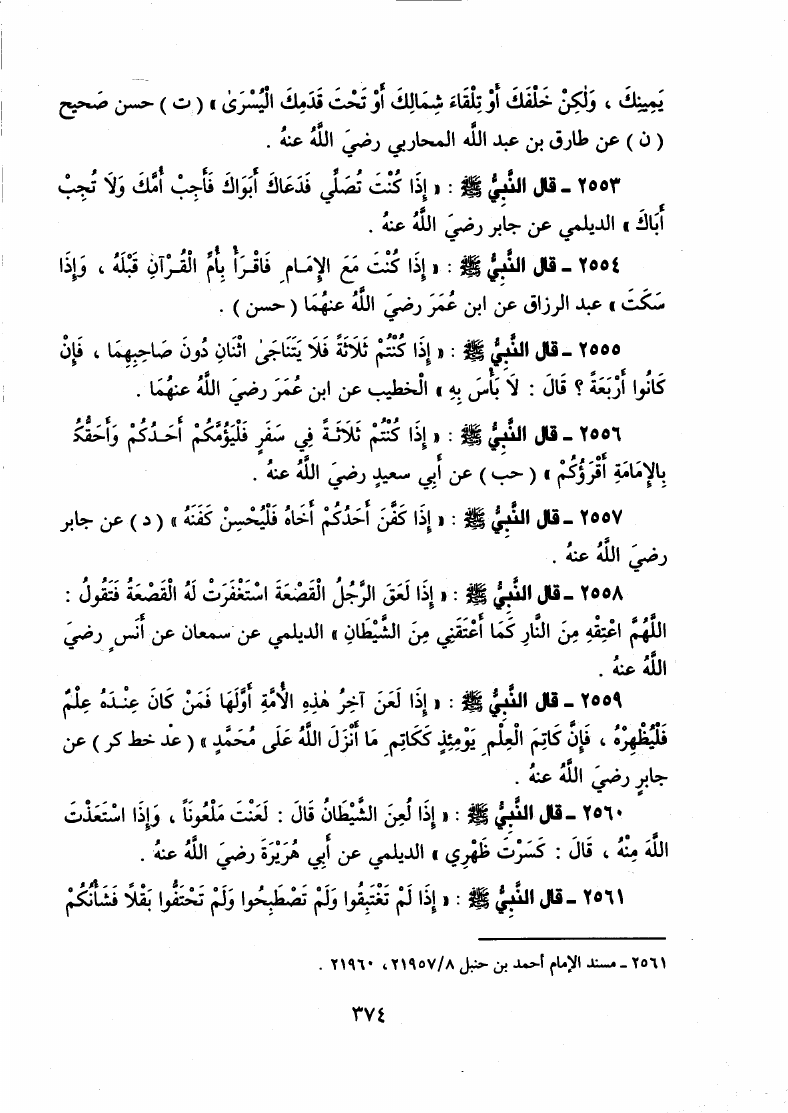 يَمِينِكَ ، وَلٰكِنْ خَلْفَكَ أَوْ تِلْقَاءَ شِمَالِكَ أَوْ تَحْتَ قَدَمِكَ الْيُسْرَىٰ » ( ت ) حسن صحيح
( ن ) عن طارق بن عبد الله المحاربي رضيَ اللَّهُ عنهُ .
٢٥٥٣ ـ قال النَّبِيُّ ﷺ : « إِذَا كُنْتَ تُصَلِّي فَدَعَاكَ أَبَوَاكَ فَأَجِبْ أُمَّكَ وَلَا تُجِبْ
أَبَاكَ » الديلمي عن جابر رضيَ اللَّهُ عنهُ .
٢٥٥٤ ـ قال النَّبِيُّ ﷺ : « إِذَا كُنْتَ مَعَ الإِمَامِ فَاقْرَأْ بِأُمِّ الْقُرْآنِ قَبْلَهُ ، وَإِذَا
سَكَتَ » عبد الرزاق عن ابن عُمَرَ رضيَ اللَّهُ عنهُمَا ( حسن ) .
٢٥٥٥ ـ قال النَّبِيُّ ﷺ : « إِذَا كُنْتُمْ ثَلَاثَةً فَلَا يَتَنَاجَىٰ اثْنَانِ دُونَ صَاحِبِهِمَا ، فَإِنْ
كَانُوا أَرْبَعَةً ؟ قَالَ : لَا بَأْسَ بِهِ » الْخطيب عن ابن عُمَرَ رضيَ اللَّهُ عنهُمَا .
٢٥٥٦ ـ قال النَّبِيُّ ﷺ : « إِذَا كُنْتُمْ ثَلَاثَةً فِي سَفَرٍ فَلْيَؤُمَّكُمْ أَحَدُكُمْ وَأَحَقُّكُمْ
بِالإِمَامَةِ أَقْرَؤُكُمْ » ( حب ) عن أَبِي سعيدٍ رضيَ اللَّهُ عنهُ .
٢٥٥٧ ـ قال النَّبِيُّ ﷺ : « إِذَا كَفَّنَ أَحَدُكُمْ أَخَاهُ فَلْيُحْسِنْ كَفَنَهُ » ( د ) عن جابر
رضيَ اللَّهُ عنهُ .
٢٥٥٨ ـ قال النَّبِيُّ ﷺ : « إِذَا لَعَقَ الرَّجُلُ الْقَصْعَةَ اسْتَغْفَرَتْ لَهُ الْقَصْعَةُ فَتَقُولُ :
اللَّهُمَّ اعْتِقْهِ مِنَ النَّارِ كَمَا أَعْتَقَنِي مِنَ الشَّيْطَانِ » الديلمي عن سمعان عن أَنَسٍ رضيَ
اللَّهُ عنهُ .
٢٥٥٩ ـ قال النَّبِيُّ ﷺ : « إِذَا لَعَنَ آخِرُ هٰذِهِ الأُمَّةِ أَوَّلَهَا فَمَنْ كَانَ عِنْدَهُ عِلْمٌ
فَلْيُظْهِرْهُ ، فَإِنَّ كَاتِمَ الْعِلْمِ يَوْمَئِذٍ كَكَاتِمِ مَا أَنْزَلَ اللَّهُ عَلَى مُحَمَّدٍ » ( عد خط كر ) عن
جابرٍ رضيَ اللَّهُ عنهُ .
٢٥٦٠ ـ قال النَّبِيُّ ﷺ : « إِذَا لُعِنَ الشَّيْطَانُ قَالَ : لَعَنْتَ مَلْعُوناً ، وَإِذَا اسْتَعَذْتَ
اللَّهَ مِنْهُ ، قَالَ : كَسَرْتَ ظَهْرِي » الديلمي عن أَبِي هُرَيْرَةَ رضيَ اللَّهُ عنهُ .
٢٥٦١ ـ قال النَّبِيُّ ﷺ : « إِذَا لَمْ تَغْتَبِقُوا وَلَمْ تَصْطَبِحُوا وَلَمْ تَحْتَفُّوا بَقْلًا فَشَأْنُكُمْ
٢٥٦١ ـ مسند الإمام أحمد بن حنبل ٢١٩٥٧/٨ ، ٢١٩٦٠ .
٣٧٤